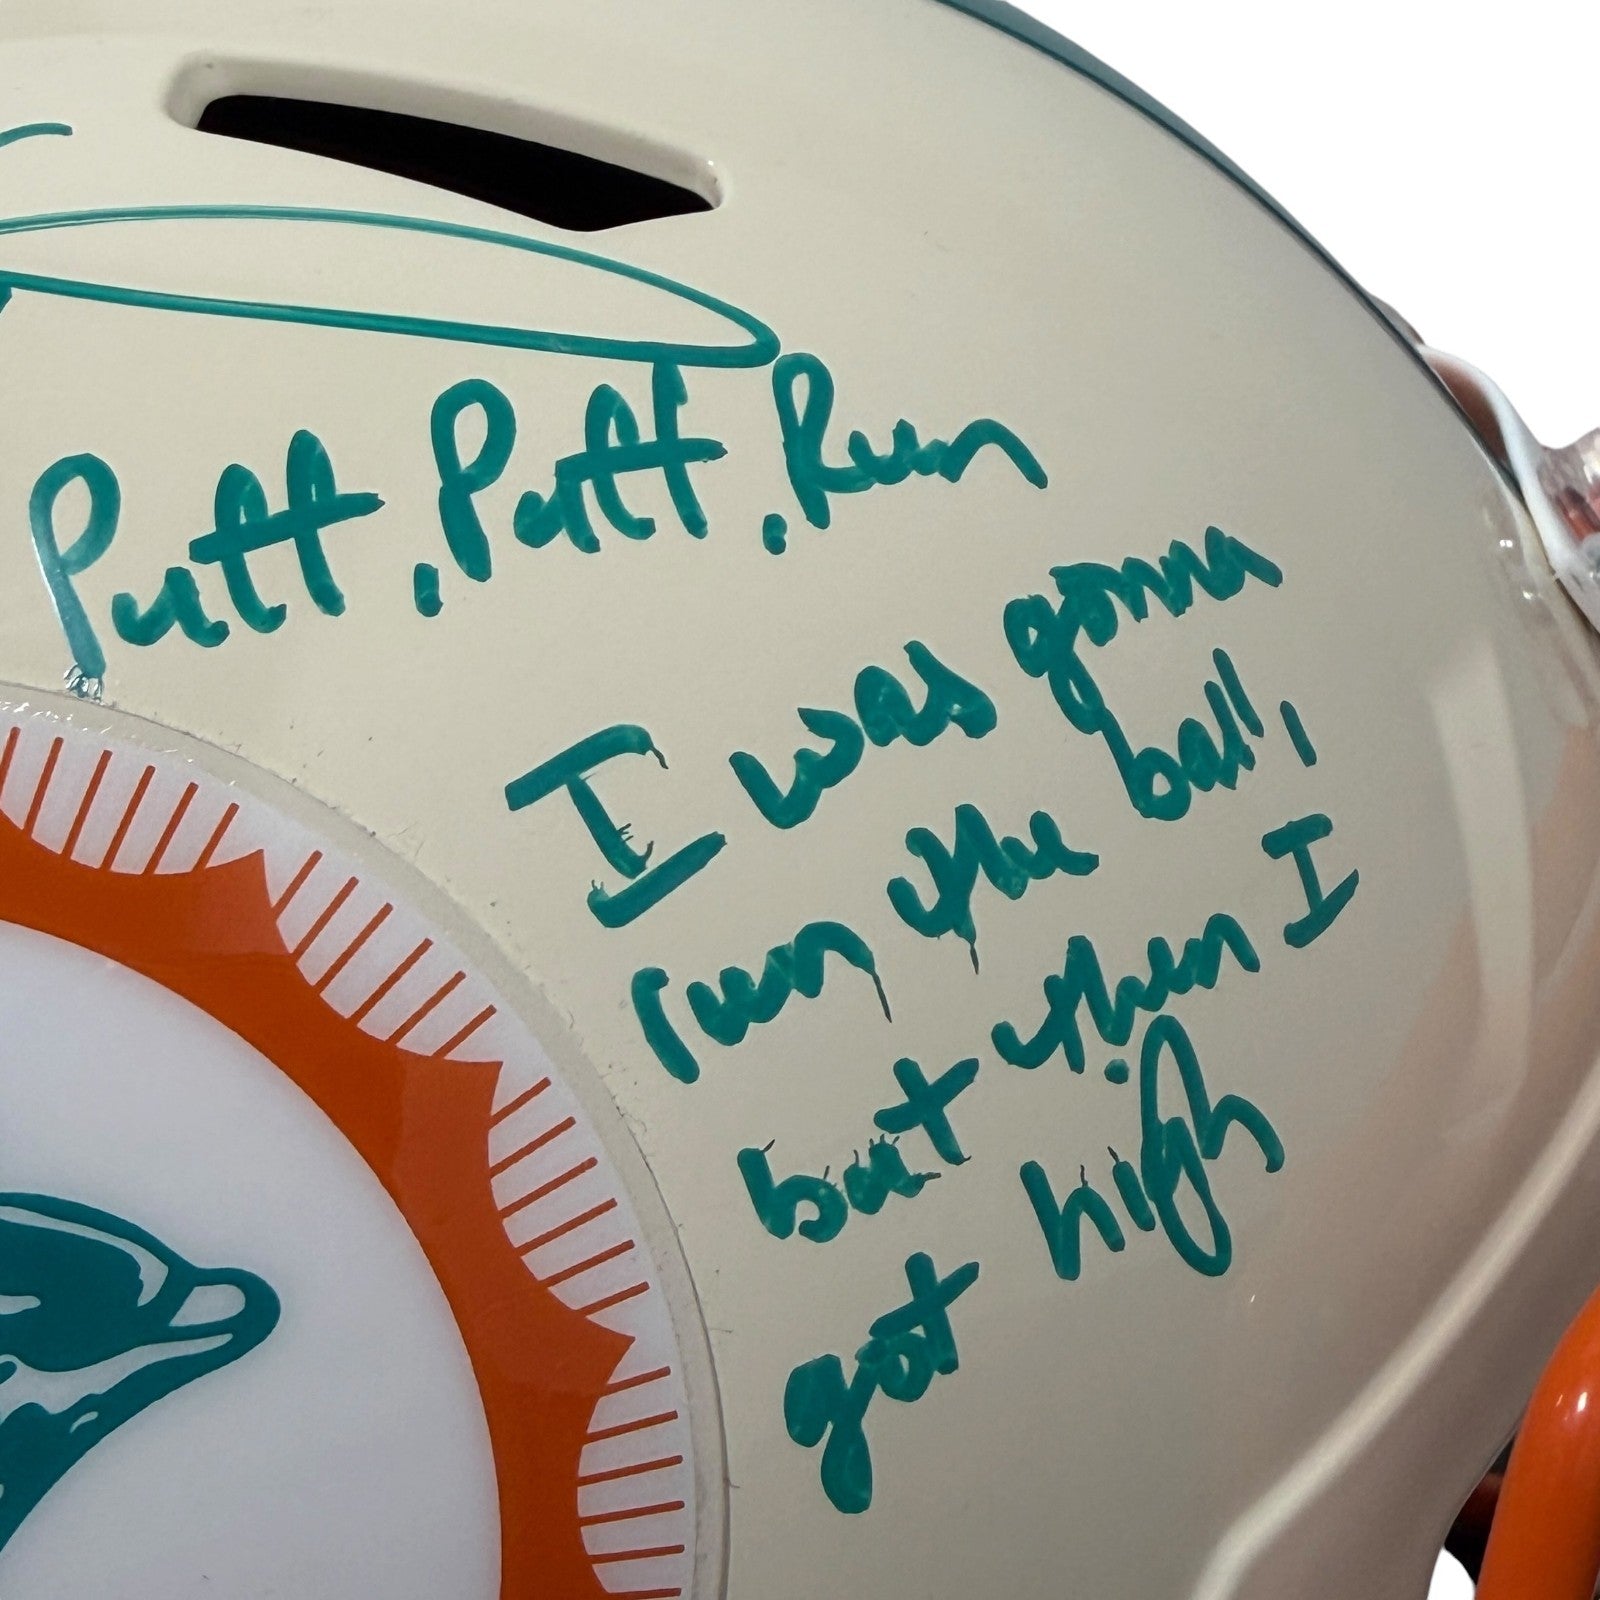 Putt, Putt, Run
I was gonna
run the ball,
but then I
got high